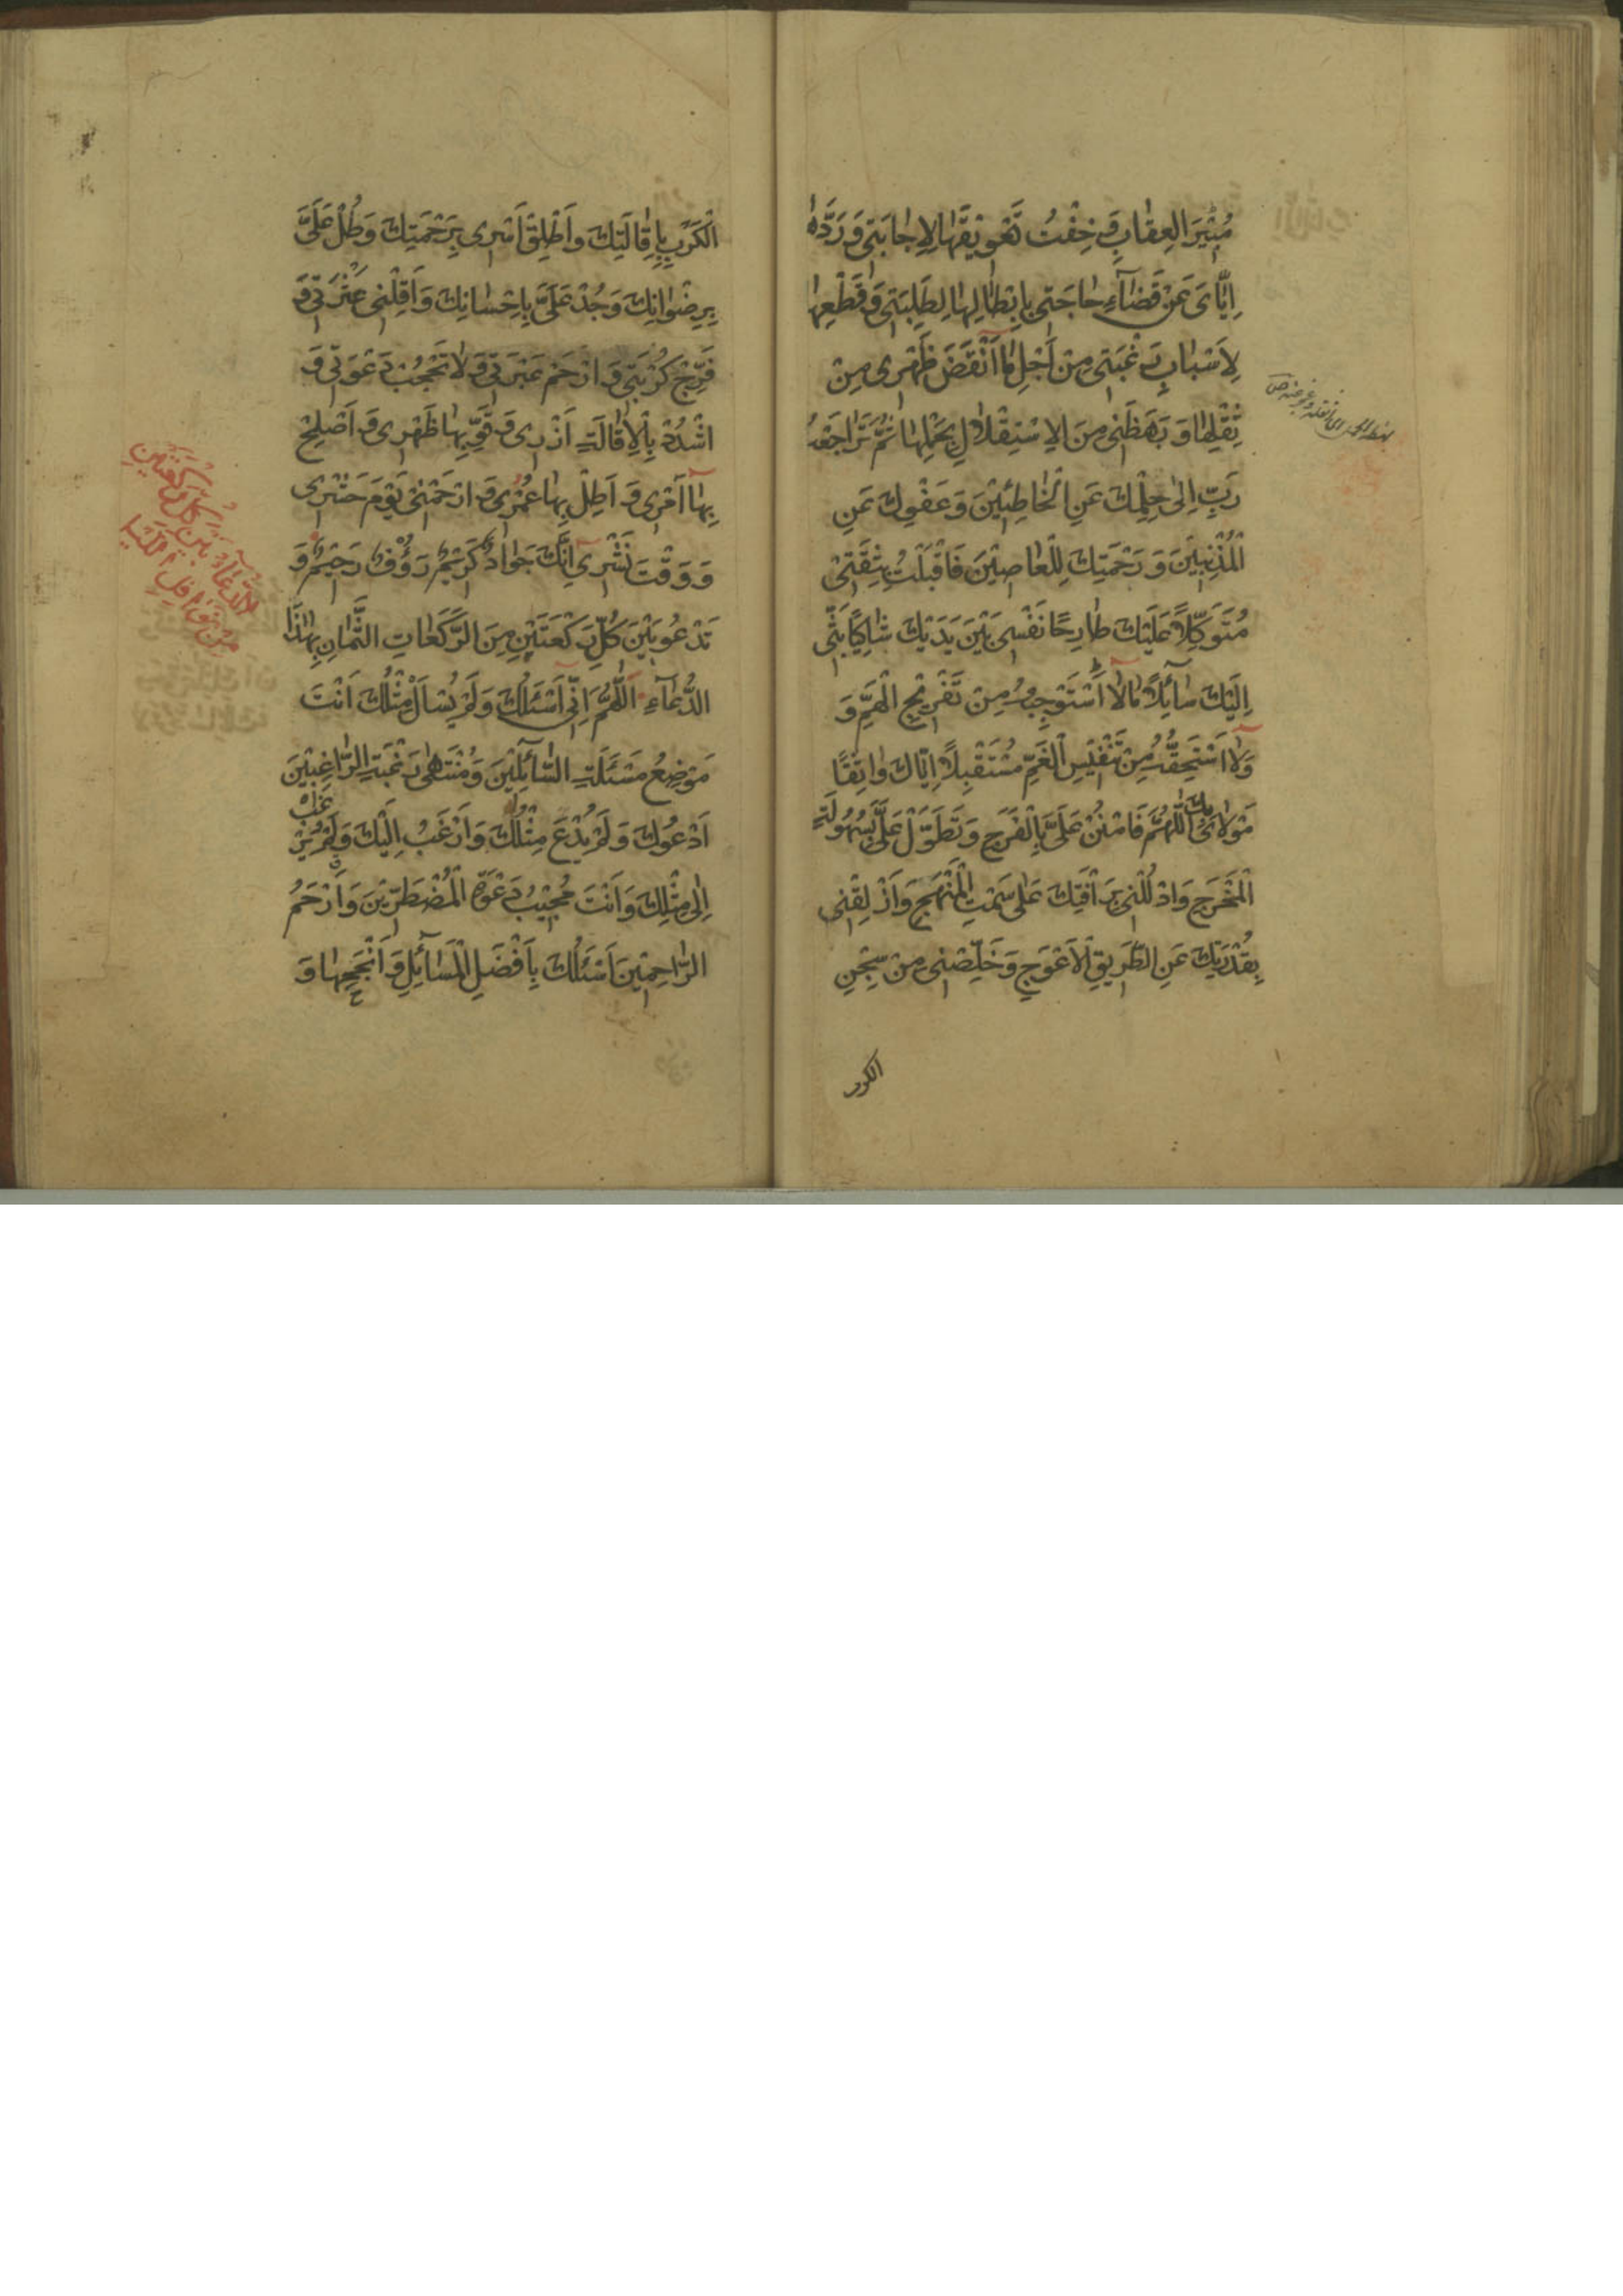 مُبِيْرَ الْعِقٰابِ وَ خِفْتُ تَعْوِيْقَهٰا لِاِجٰابَتِى وَ رَدَّهٰا
اِيّٰاىَ عَنْ قَضٰآءِ حٰاجَتِى بِاِبْطٰالِهٰا لِطَلِبَتِى وَ قَطْعِهٰا
لِاَسْبٰابِ رَغْبَتِى مِنْ اَجْلِ مٰا اَنْقَضَ ظَهْرِى مِنْ
ثِقْلِهٰا وَ بَهَظَنِى مِنَ الْاِسْتِقْلٰالِ بِحَمْلِهٰا ثُمَّ تَرٰاجَعْتُ
رَبِّ اِلىٰ حِلْمِكَ عَنِ الْخٰاطِئِيْنَ وَ عَفْوِكَ عَنِ
الْمُذْنِبِيْنَ وَ رَحْمَتِكَ لِلْعٰاصِيْنَ فَاَقْبَلْتُ بِثِقَتِىْ
مُتَوَكِّلًا عَلَيْكَ طٰارِحًا نَفْسِى بَيْنَ يَدَيْكَ شٰاكِيًا بَثِّى
اِلَيْكَ سٰآئِلًا مٰا لٰا اَسْتَوْجِبُهُ مِنْ تَفْرِيْجِ الْهَمِّ وَ
وَلٰا اَسْتَحِقُّهُ مِنْ تَنْفِيْسِ الْغَمِّ مُسْتَقْبِلًا اِيّٰاكَ وٰاثِقًا
مَوْلٰاىَ بِكَ اَللّٰهُمَّ فَامْنُنْ عَلَىَّ بِالْفَرَجِ وَ تَطَوَّلْ عَلَىَّ بِسُهُولَةِ
الْمَخْرَجِ وَادْلُلْنِى بِرَأْفَتِكَ عَلىٰ سَمْتِ الْمَنْهَجِ وَ اَزْلِقْنِى
بِقُدْرَتِكَ عَنِ الطَّرِيْقِ الْاَعْوَجِ وَ خَلِّصْنِى مِنْ سِجْنِ
الْكَرْبِ بِاِقٰالَتِكَ وَ اَطْلِقْ اَسْرِى بِرَحْمَتِكَ وَ طُلْ عَلَىَّ
بِرِضْوٰانِكَ وَ جُدْ عَلَىَّ بِاِحْسٰانِكَ وَ اَقِلْنِى عَثْرَتِى وَ
فَرِّجْ كُرْبَتِى وَ ارْحَمْ عَبْرَتِى وَ لٰا تَحْجُبْ دَعْوَتِى وَ
اشْدُدْ بِالْاِقٰالَةِ اَزْرِى وَ قَوِّ بِهٰا ظَهْرِى وَ اَصْلِحْ
بِهٰا اَمْرِى وَ اَطِلْ بِهٰا عُمْرِى وَ ارْحَمْنِى يَوْمَ حَشْرِى
وَ وَقْتَ نَشْرِى اِنَّكَ جَوٰادٌ كَرِيْمٌ رَؤُفٌ رَحِيْمٌ وَ
تَدْعُو بَيْنَ كُلِّ رَكْعَتَيْنِ مِنَ الرَّكَعٰاتِ الثَّمٰانِ بِهٰذَا
الدُّعٰآءِ اَللّٰهُمَّ اِنِّى اَسْئَلُكَ وَ لَمْ يُسْأَلْ مِثْلُكَ اَنْتَ
مَوْضِعُ مَسْئَلَةِ السّٰآئِلِيْنَ وَ مُنْتَهىٰ رَغْبَةِ الرّٰاغِبِيْنَ
اَدْعُوكَ وَ لَمْ يُدْعَ مِثْلُكَ وَ اَرْغَبُ اِلَيْكَ وَ لَمْ يُرْغَبْ
اِلىٰ مِثْلِكَ وَ اَنْتَ مُجِيْبُ دَعْوَةِ الْمُضْطَرِّيْنَ وَ اَرْحَمُ
الرّٰاحِمِيْنَ اَسْئَلُكَ بِاَفْضَلِ الْمَسٰآئِلِ وَ اَنْجَحِهٰا وَ